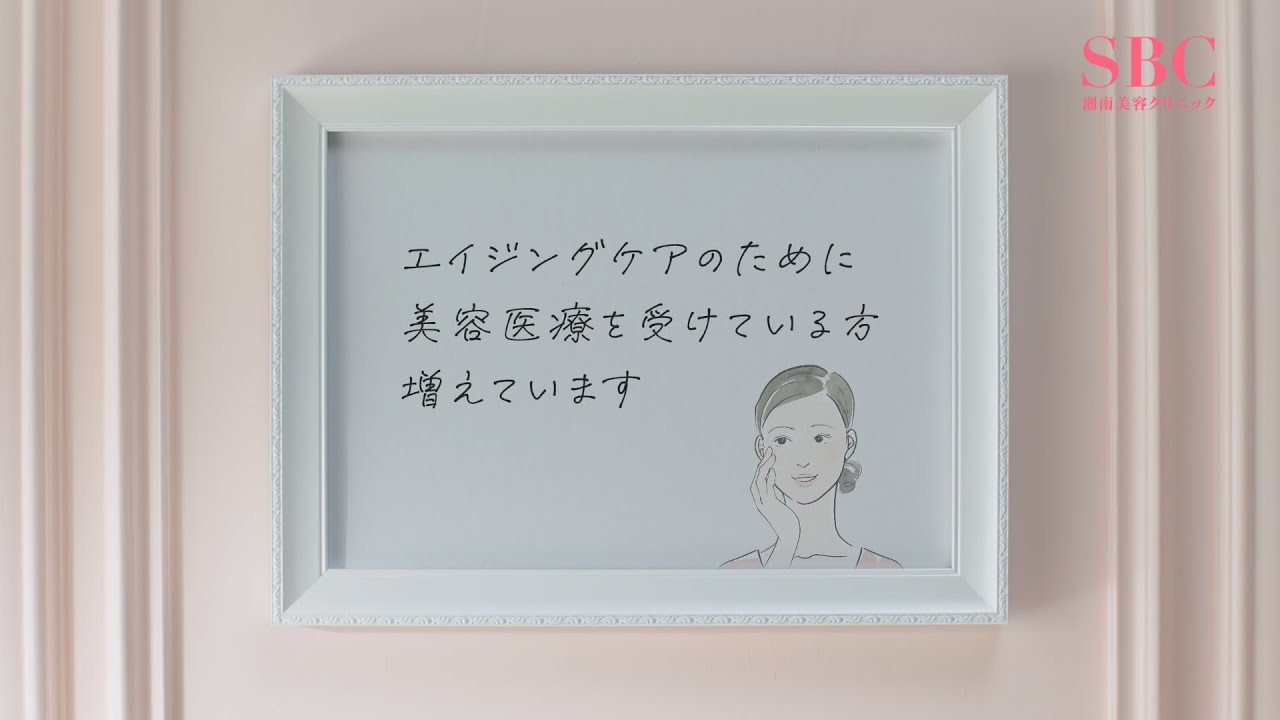 SBC
湘南美容クリニック
エイジングケアのために
美容医療を受けている方
増えています